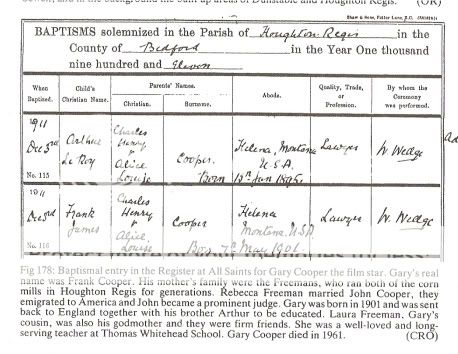 (OR)
Shaw & Sons, Fetter Lane, E.C.
BAPTISMS solemnized in the Parish of Houghton Regis in the
County of Bedford in the Year One thousand
nine hundred and Eleven
When Baptized. Child's Christian Name. Parents' Names. Christian. Surname. Abode. Quality, Trade, or Profession. By whom the Ceremony was performed.
1911
Dec 3rd
No. 115
Arthur
Le Roy
Charles
Henry
&
Alice
Louise
Cooper.
Helena, Montana
U.S.A.
Born Jan 1895.
Lawyer
W. Wedge
ad
1911
Dec 3rd
No. 116
Frank
James
Charles
Henry
&
Alice
Louise
Cooper
Helena
Montana, U.S.A
Born 7th May 1901.
Lawyer
W. Wedge
Fig 178: Baptismal entry in the Register at All Saints for Gary Cooper the film star. Gary's real
name was Frank Cooper. His mother's family were the Freemans, who ran both of the corn
mills in Houghton Regis for generations. Rebecca Freeman married John Cooper, they
emigrated to America and John became a prominent judge. Gary was born in 1901 and was sent
back to England together with his brother Arthur to be educated. Laura Freeman. Gary's
cousin, was also his godmother and they were firm friends. She was a well-loved and long-
serving teacher at Thomas Whitehead School. Gary Cooper died in 1961. (CRO)